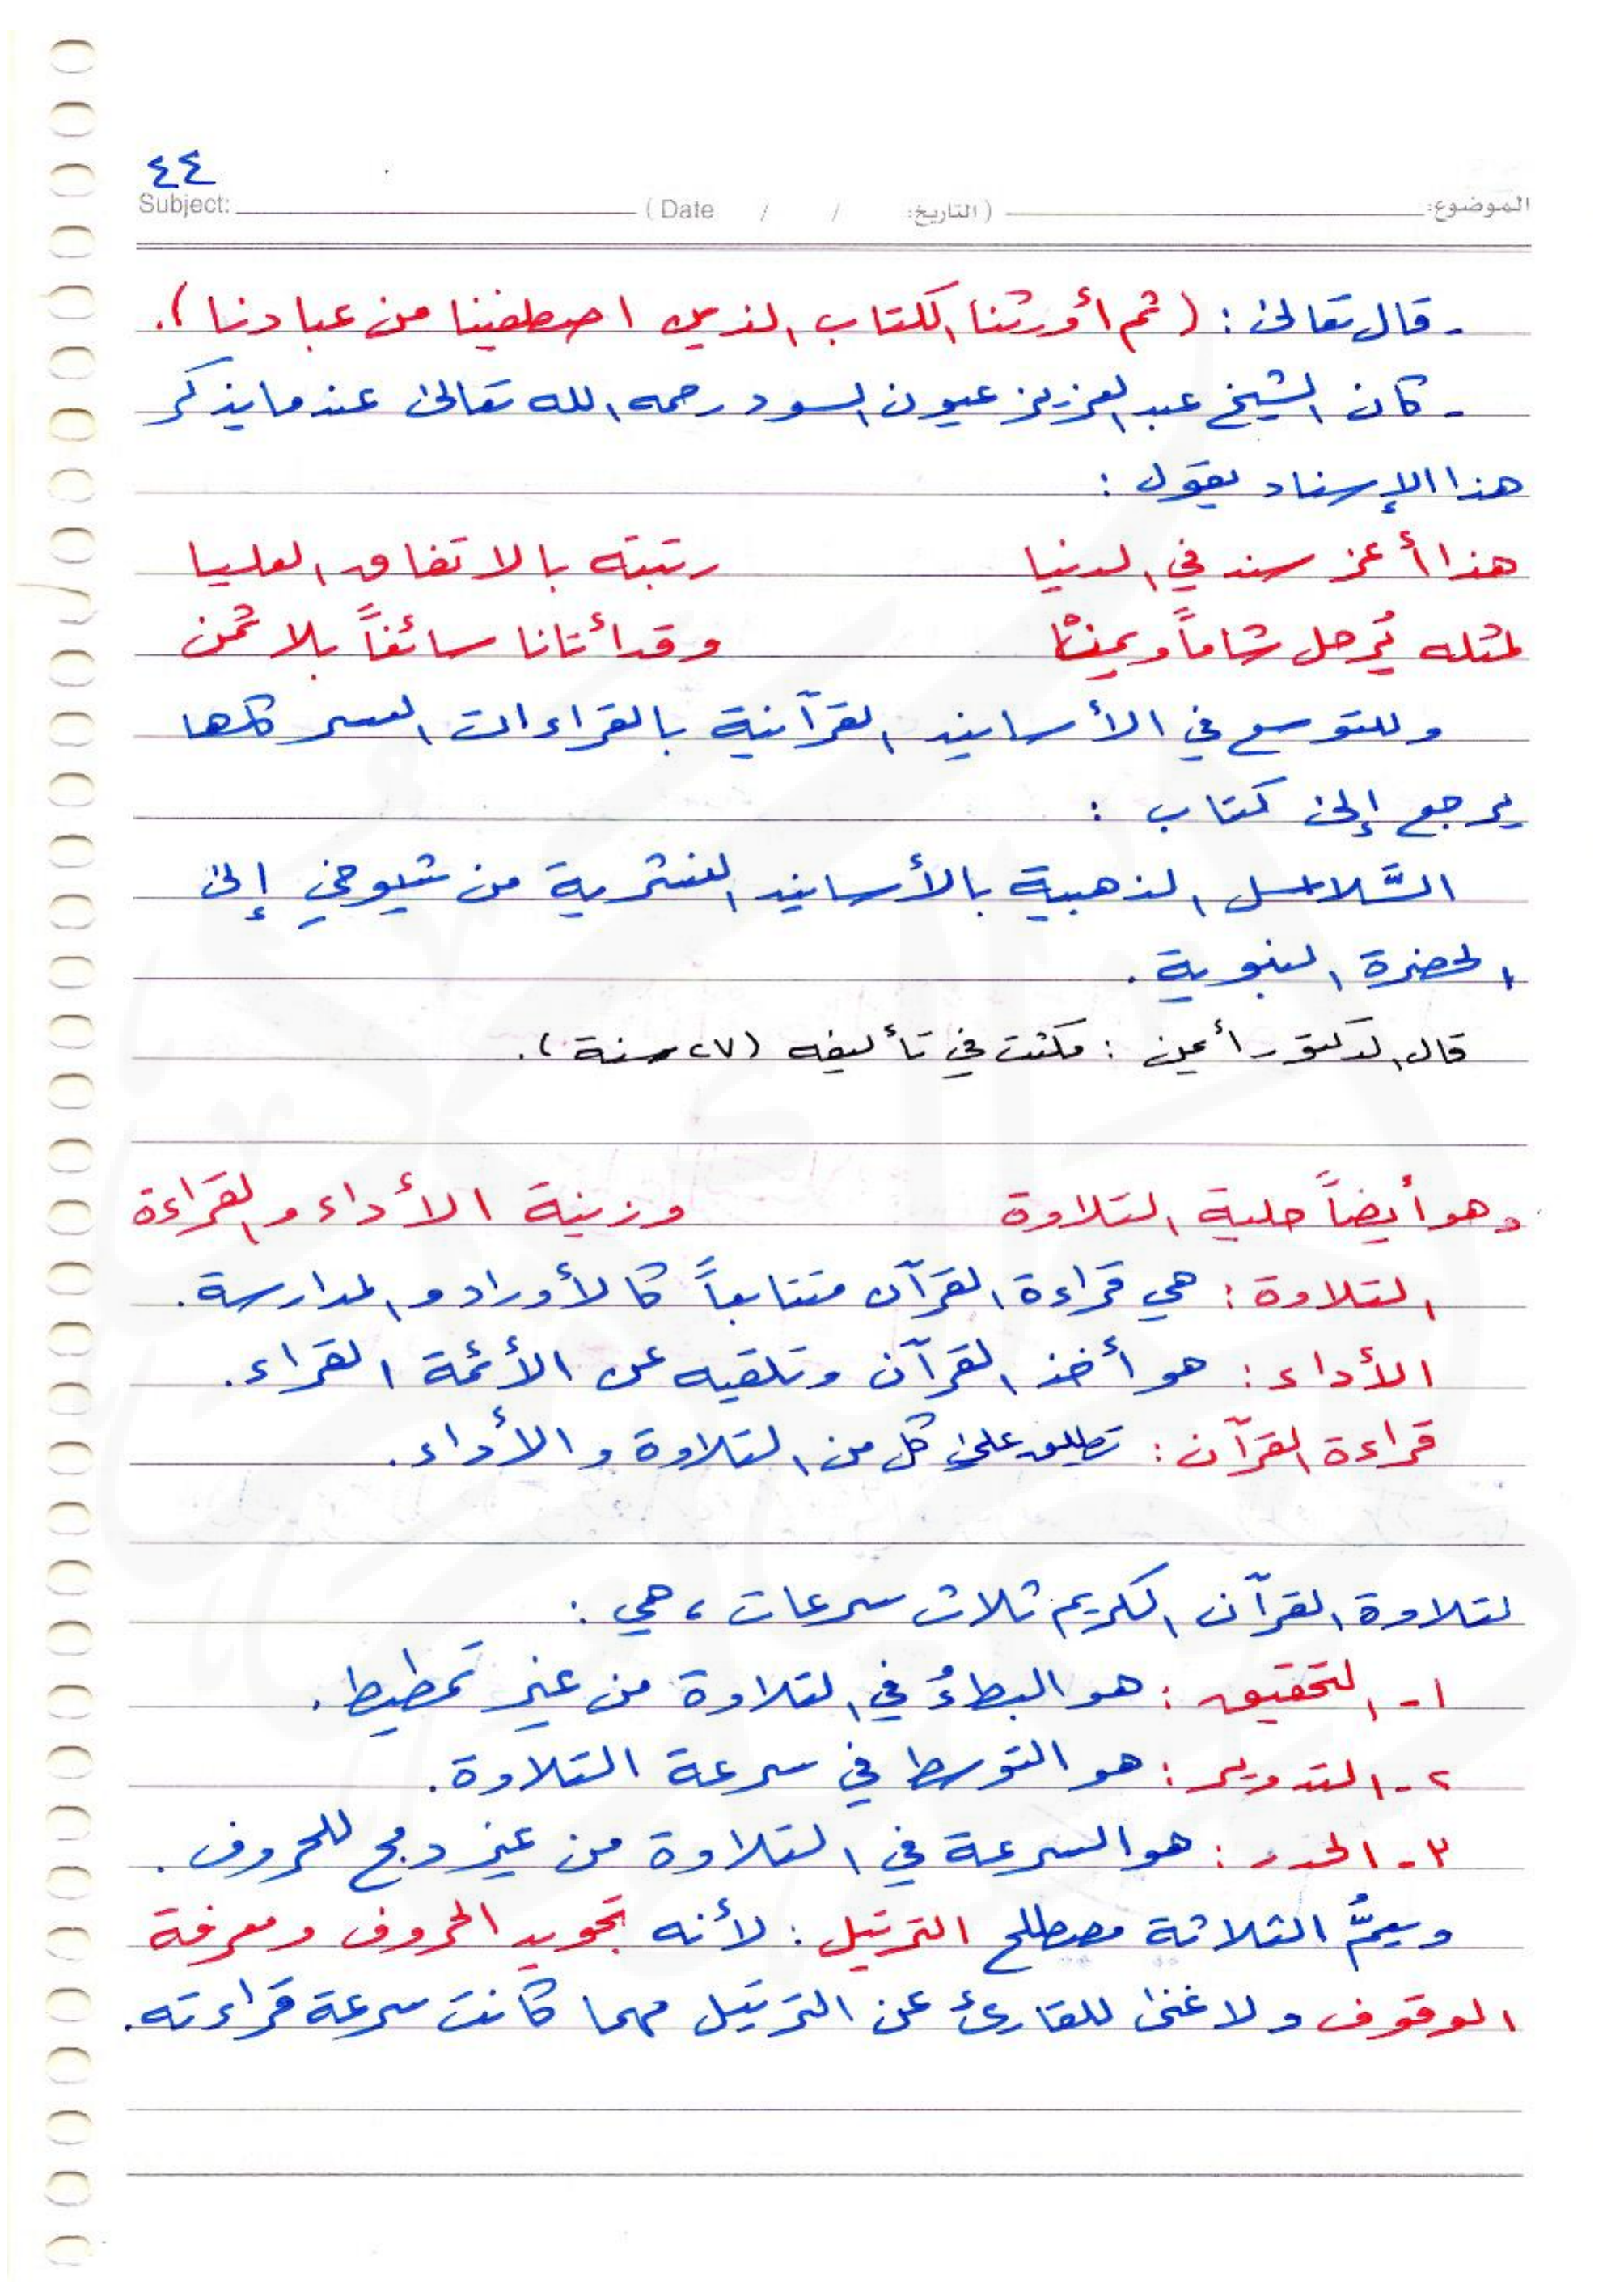 ٤٤
الموضوع: (التاريخ: / / Date) Subject:
- قال تعالى : (ثم أورثنا الكتاب الذين اصطفينا من عبادنا).
- كان الشيخ عبد العزيز عيون السود رحمه الله تعالى عندما يذكر
هذا الإسناد يقول :
هذا أعز سند في الدنيا رتبته بالاتفاق العليا
لمثله يُرحل شاماً ويمن وقد أتانا سائغاً بلا ثمن
وللتوسع في الأسانيد القرآنية بالقراءات العشر كلها
يرجع إلى كتاب :
السَّلاسل الذهبية بالأسانيد النشرية من شيوخي إلى
الحضرة النبوية .
قال الدكتور أيمن : مكثت في تأليفه (٢٧ سنة).
وهو أيضاً حلية التلاوة وزينة الأداء والقراءة
التلاوة : هي قراءة القرآن متتابعاً كالأوراد والمدارسة.
الأداء : هو أخذ القرآن وتلقيه عن الأئمة القراء.
قراءة القرآن : تطلق على كل من التلاوة والأداء.
لتلاوة القرآن الكريم ثلاث سرعات ، هي :
١- التحقيق : هو البطءُ في التلاوة من غير تمطيط.
٢- التدوير : هو التوسط في سرعة التلاوة.
٣- الحدر : هو السرعة في التلاوة من غير دمج للحروف.
ويعمُّ الثلاثة مصطلح الترتيل : لأنه تجويد الحروف ومعرفة
الوقوف ولا غنى للقارئ عن الترتيل مهما كانت سرعة قراءته.